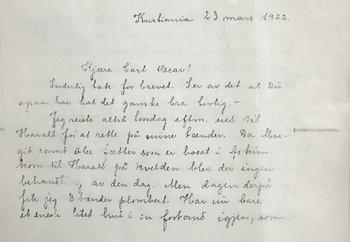 Kristiania 23 mars 1922.
Kjære Carl Oscar!
Inderlig takk for brevet. Ser av det at Du
har hat det ganske bra livlig. –
Jeg reiste altså lørdag efterm. ned til
Harald for at rette på mine tænder. Da
samt fætter som er bosat i Askim
kom til Harald på kvelden blev der ingen
av den dag. Men dagen derpå
fik jeg 3 tænder plombert. Har nu bare
et eneste litet hul i en fortand igjen, som